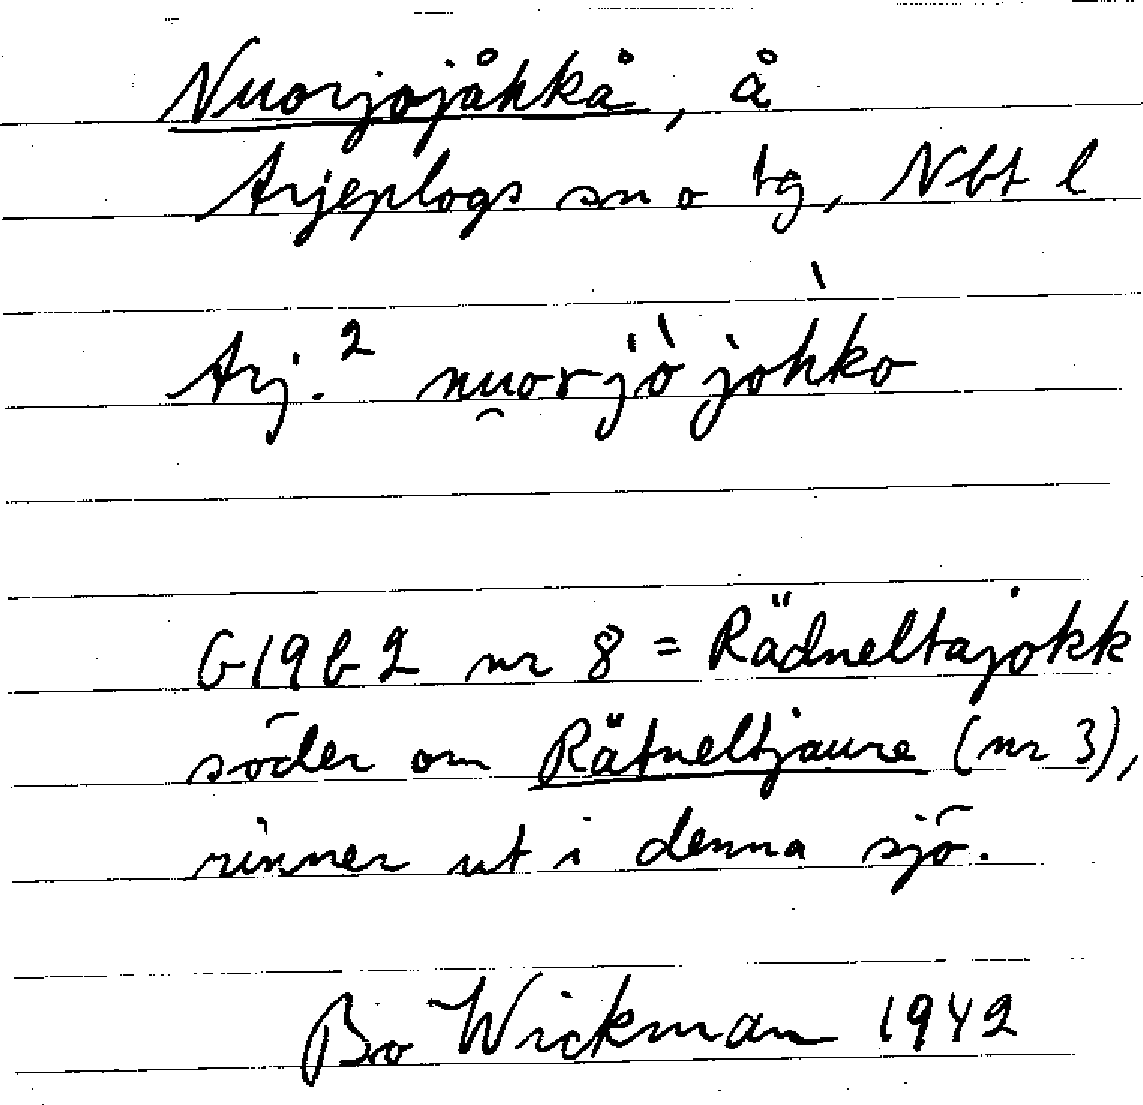 Nuorjojåkkå, å
Arjeplogs sn o tg, Nbt l
Arj.² nu̯orjò jòhko
G19b2 nr 8 = Rädneltajokk
söder om Rätneltjaure (nr 3),
rinner ut i denna sjö.
Bo Wickman 1942